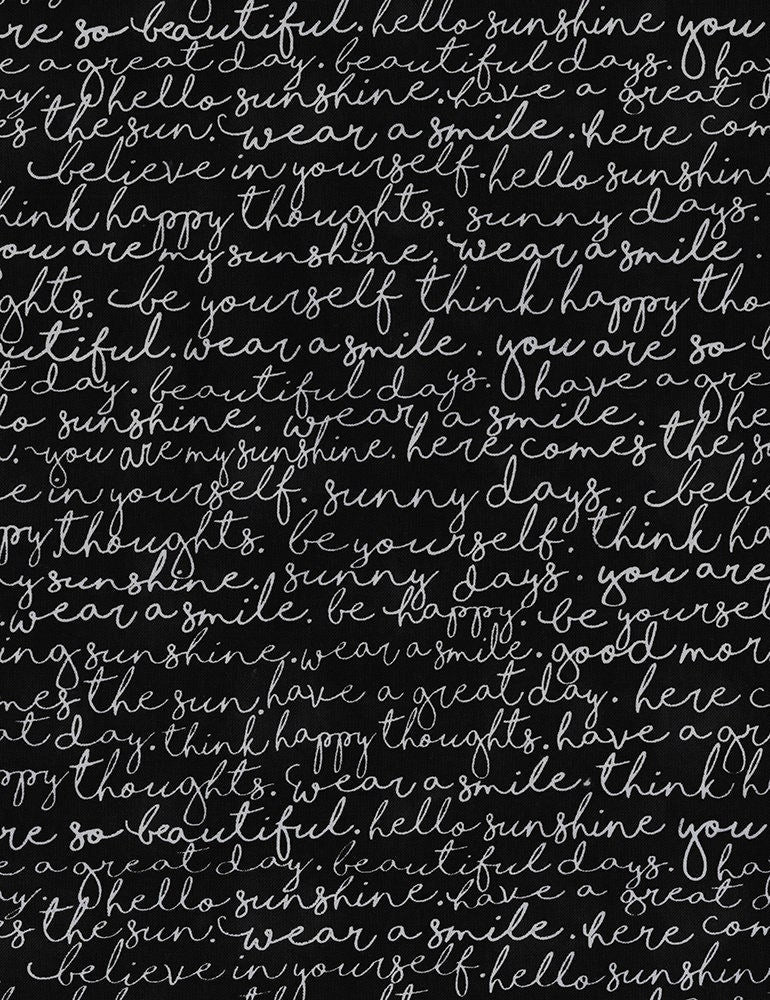 re so beautiful. hello sunshine you
e a great day. beautiful days. hav
ay. hello sunshine. have a great d
es the sun. wear a smile. here com
believe in yourself. hello sunshine
hink happy thoughts. sunny days.
ou are my sunshine. wear a smile.
ghts. be yourself think happy tho
utiful. wear a smile. you are so b
t day. beautiful days. have a grea
lo sunshine. wear a smile. he
. you are my sunshine. here comes the su
e in yourself. sunny days. belie
ppy thoughts. be yourself. think ha
y sunshine. sunny days. you are
. wear a smile. be happy. be yoursel
ing sunshine. wear a smile. good mor
mes the sun. have a great day. here c
at day. think happy thoughts. have a gr
ppy thoughts. wear a smile. think h
re so beautiful. hello sunshine you
e a great day. beautiful days. hav
ay. hello sunshine. have a great d
es the sun. wear a smile. here com
believe in yourself. hello sunshine